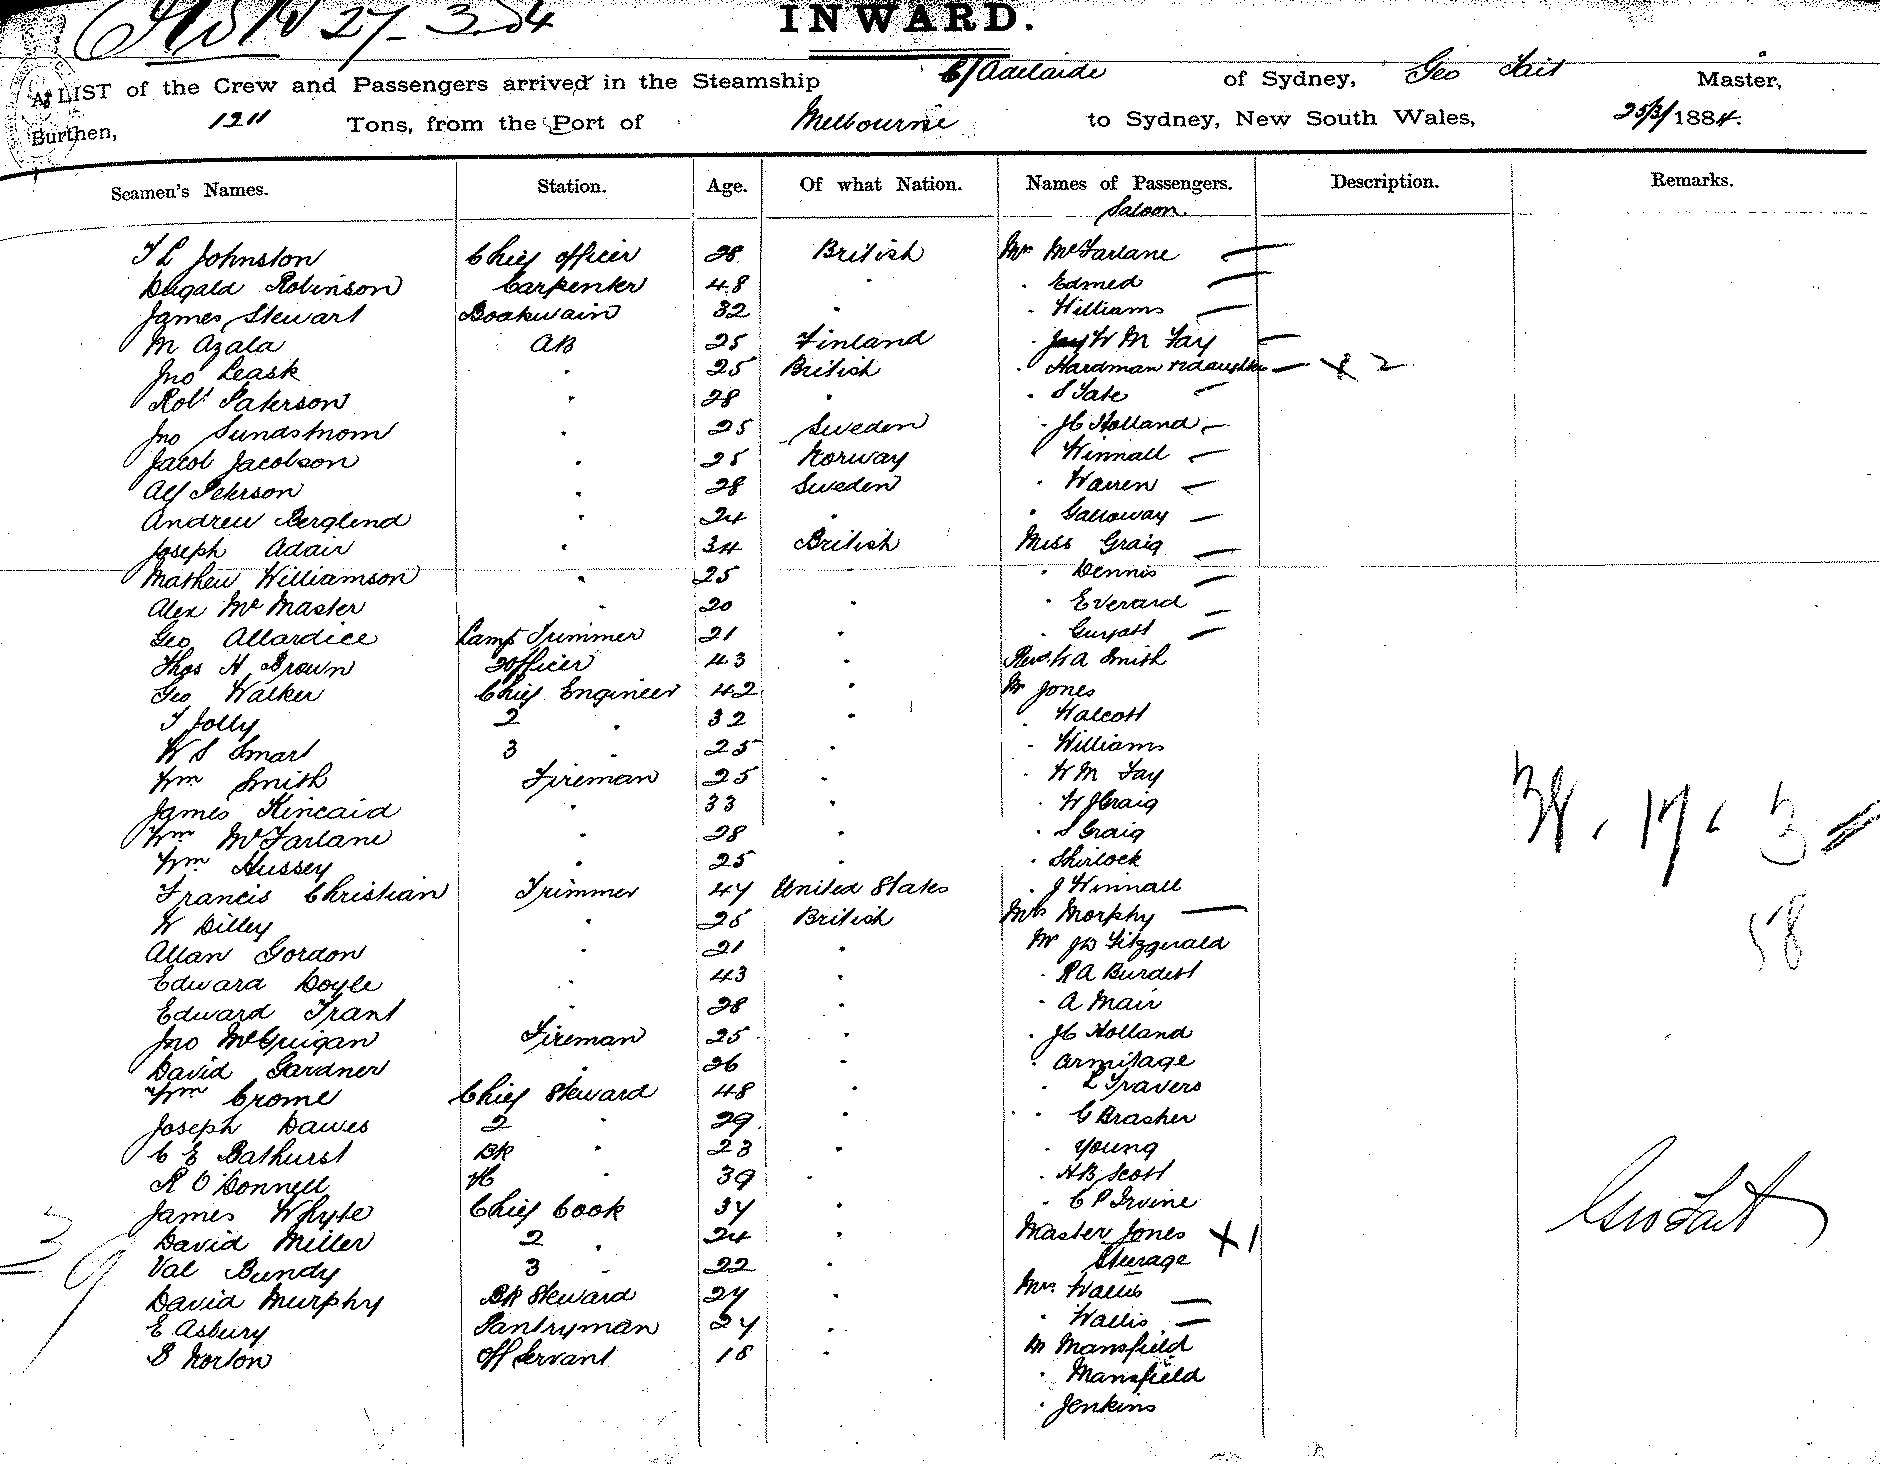 27-3-84
INWARD.
A LIST of the Crew and Passengers arrived in the Steamship C/ Adelaide of Sydney, Geo Tait Master,
Burthen, 1211 Tons, from the Port of Melbourne to Sydney, New South Wales, 25/3/1884.
Seamen's Names. Station. Age. Of what Nation. Names of Passengers. Description. Remarks.
Saloon.
T L Johnston Chief Officer 28 British Mr McFarlane —
Dugald Robinson Carpenter 48 " " Edmed —
James Stewart Boatswain 32 " " Williams —
M Azala AB 25 Finland " W M Fay —
Jno Leask " 25 British " Hardman & daughter — X 2
Robt Paterson " 28 " " S Tate —
Jno Sundstrom " 25 Sweden " JC Holland —
Jacob Jacobson " 25 Norway " Winnall —
Alf Peterson " 28 Sweden " Warren —
Andrew Berglend " 24 " " Galloway —
Joseph Adair " 34 British Miss Graig —
Mathew Williamson " 25 " " Dennis —
Alex McMaster " 20 " " Everard —
Geo Allardice Lamp Trimmer 21 " " —
Thos H Brown 2 Officer 43 " Revd W A Smith
Geo Walker Chief Engineer 42 " Mr Jones
T Jolly 2 " 32 " " Walcott
W S Smart 3 " 25 " " Williams
Wm Smith Fireman 25 " " W M Fay
James Kincaid " 33 " " W J Craig
Wm McFarlane " 28 " " S Graig
Wm Hussey " 25 " " Shirlock
Francis Christian Trimmer 47 United States " J Winnall
W Dilley " 25 British Mrs Morphy —
Allan Gordon " 21 " Mr JD Fitzgerald
Edward Doyle " 43 " " R A Burdett
Edward Trant " 28 " " A Mair
Jno McGuigan Fireman 25 " " JC Holland
David Gardner " 26 " " Armitage
Wm Crome Chief Steward 48 " " L Travers
Joseph Dawes 2 " 29 " " G Brasher
C E Bathurst BK " 23 " " Young
R O'Donnell 39 " " H B Scott
James Whyte Chief Cook 37 " " C P Irvine
David Miller 2 " 24 " Master Jones X 1
Steerage
Val Bundy 3 " 22 "
David Murphy BK Steward 27 " Mrs Wallis —
E Asbury Pantryman 27 " " Wallis —
S Norton Off Servant 18 " Mr Mansfield
" Mansfield
" Jenkins
38. 17. 3
58
Geo Tait
39